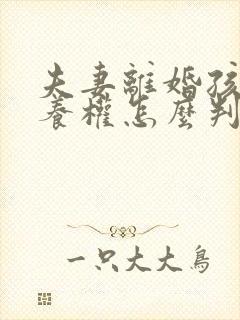 夫妻離婚孩
養權怎麼判
一只大大鳥